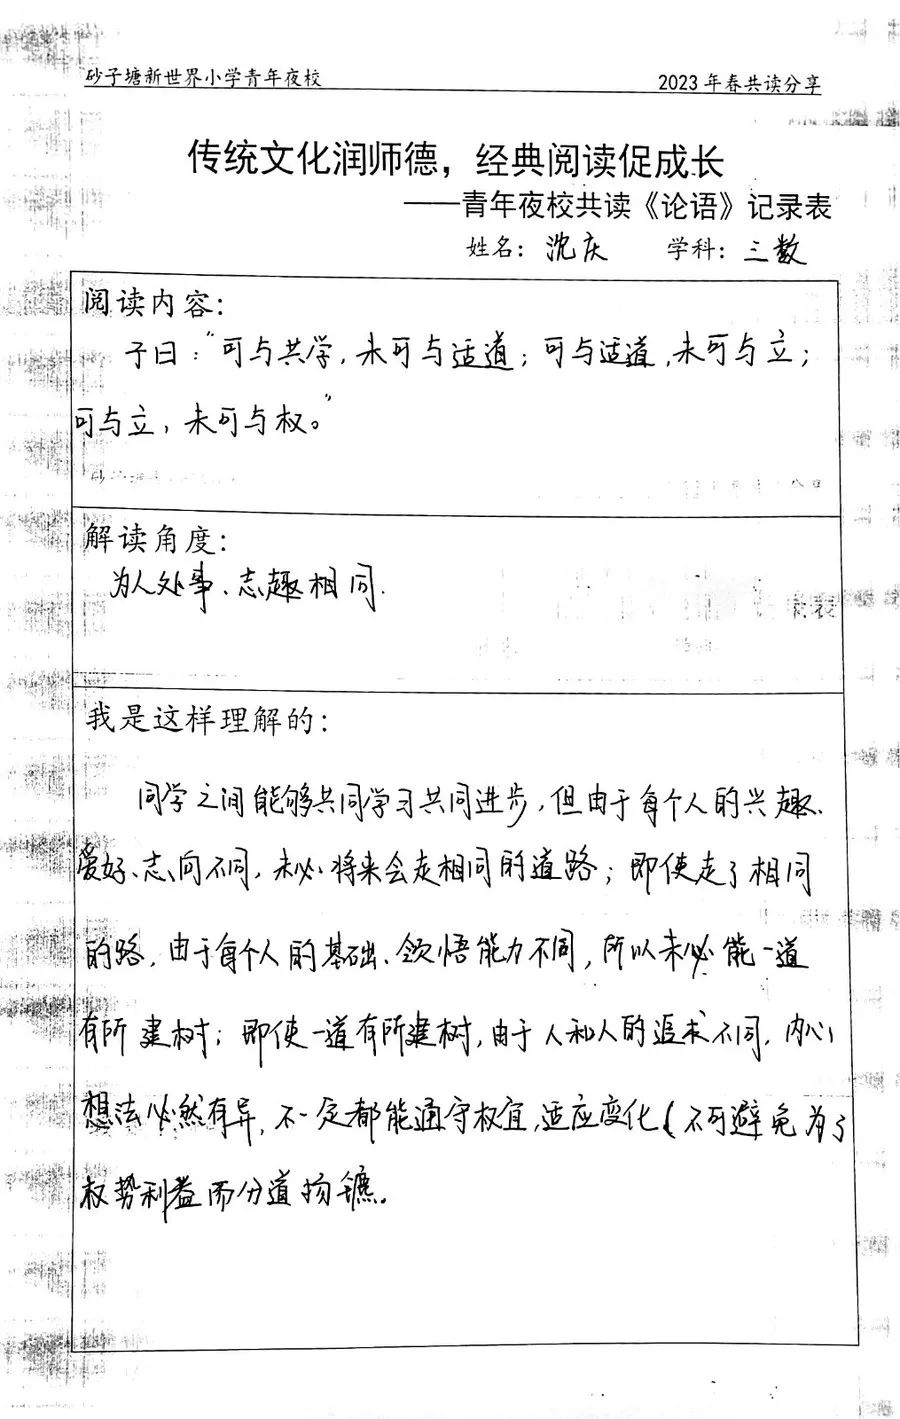 砂子塘新世界小学青年夜校 2023年春共读分享
传统文化润师德，经典阅读促成长
——青年夜校共读《论语》记录表
姓名：沈庆 学科：三数
阅读内容：
子曰：“可与共学，未可与适道；可与适道，未可与立；
可与立，未可与权。”
解读角度：
为人处事、志趣相同.
我是这样理解的：
同学之间能够共同学习共同进步，但由于每个人的兴趣、
爱好、志向不同，未必将来会走相同的道路；即使走了相同
的路，由于每个人的基础、领悟能力不同，所以未必能一道
有所建树；即使一道有所建树，由于人和人的追求不同，内心
想法必然有异，不一定都能通守权宜，适应变化（不可避免为了
权势利益而分道扬镳。